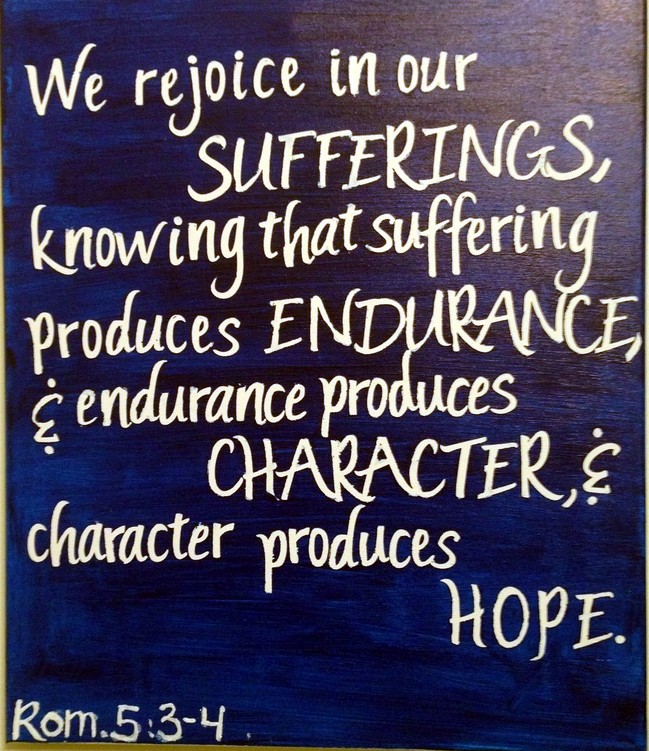 We rejoice in our
SUFFERINGS,
knowing that suffering
produces ENDURANCE,
& endurance produces
CHARACTER, &
character produces
HOPE.
Rom. 5:3-4